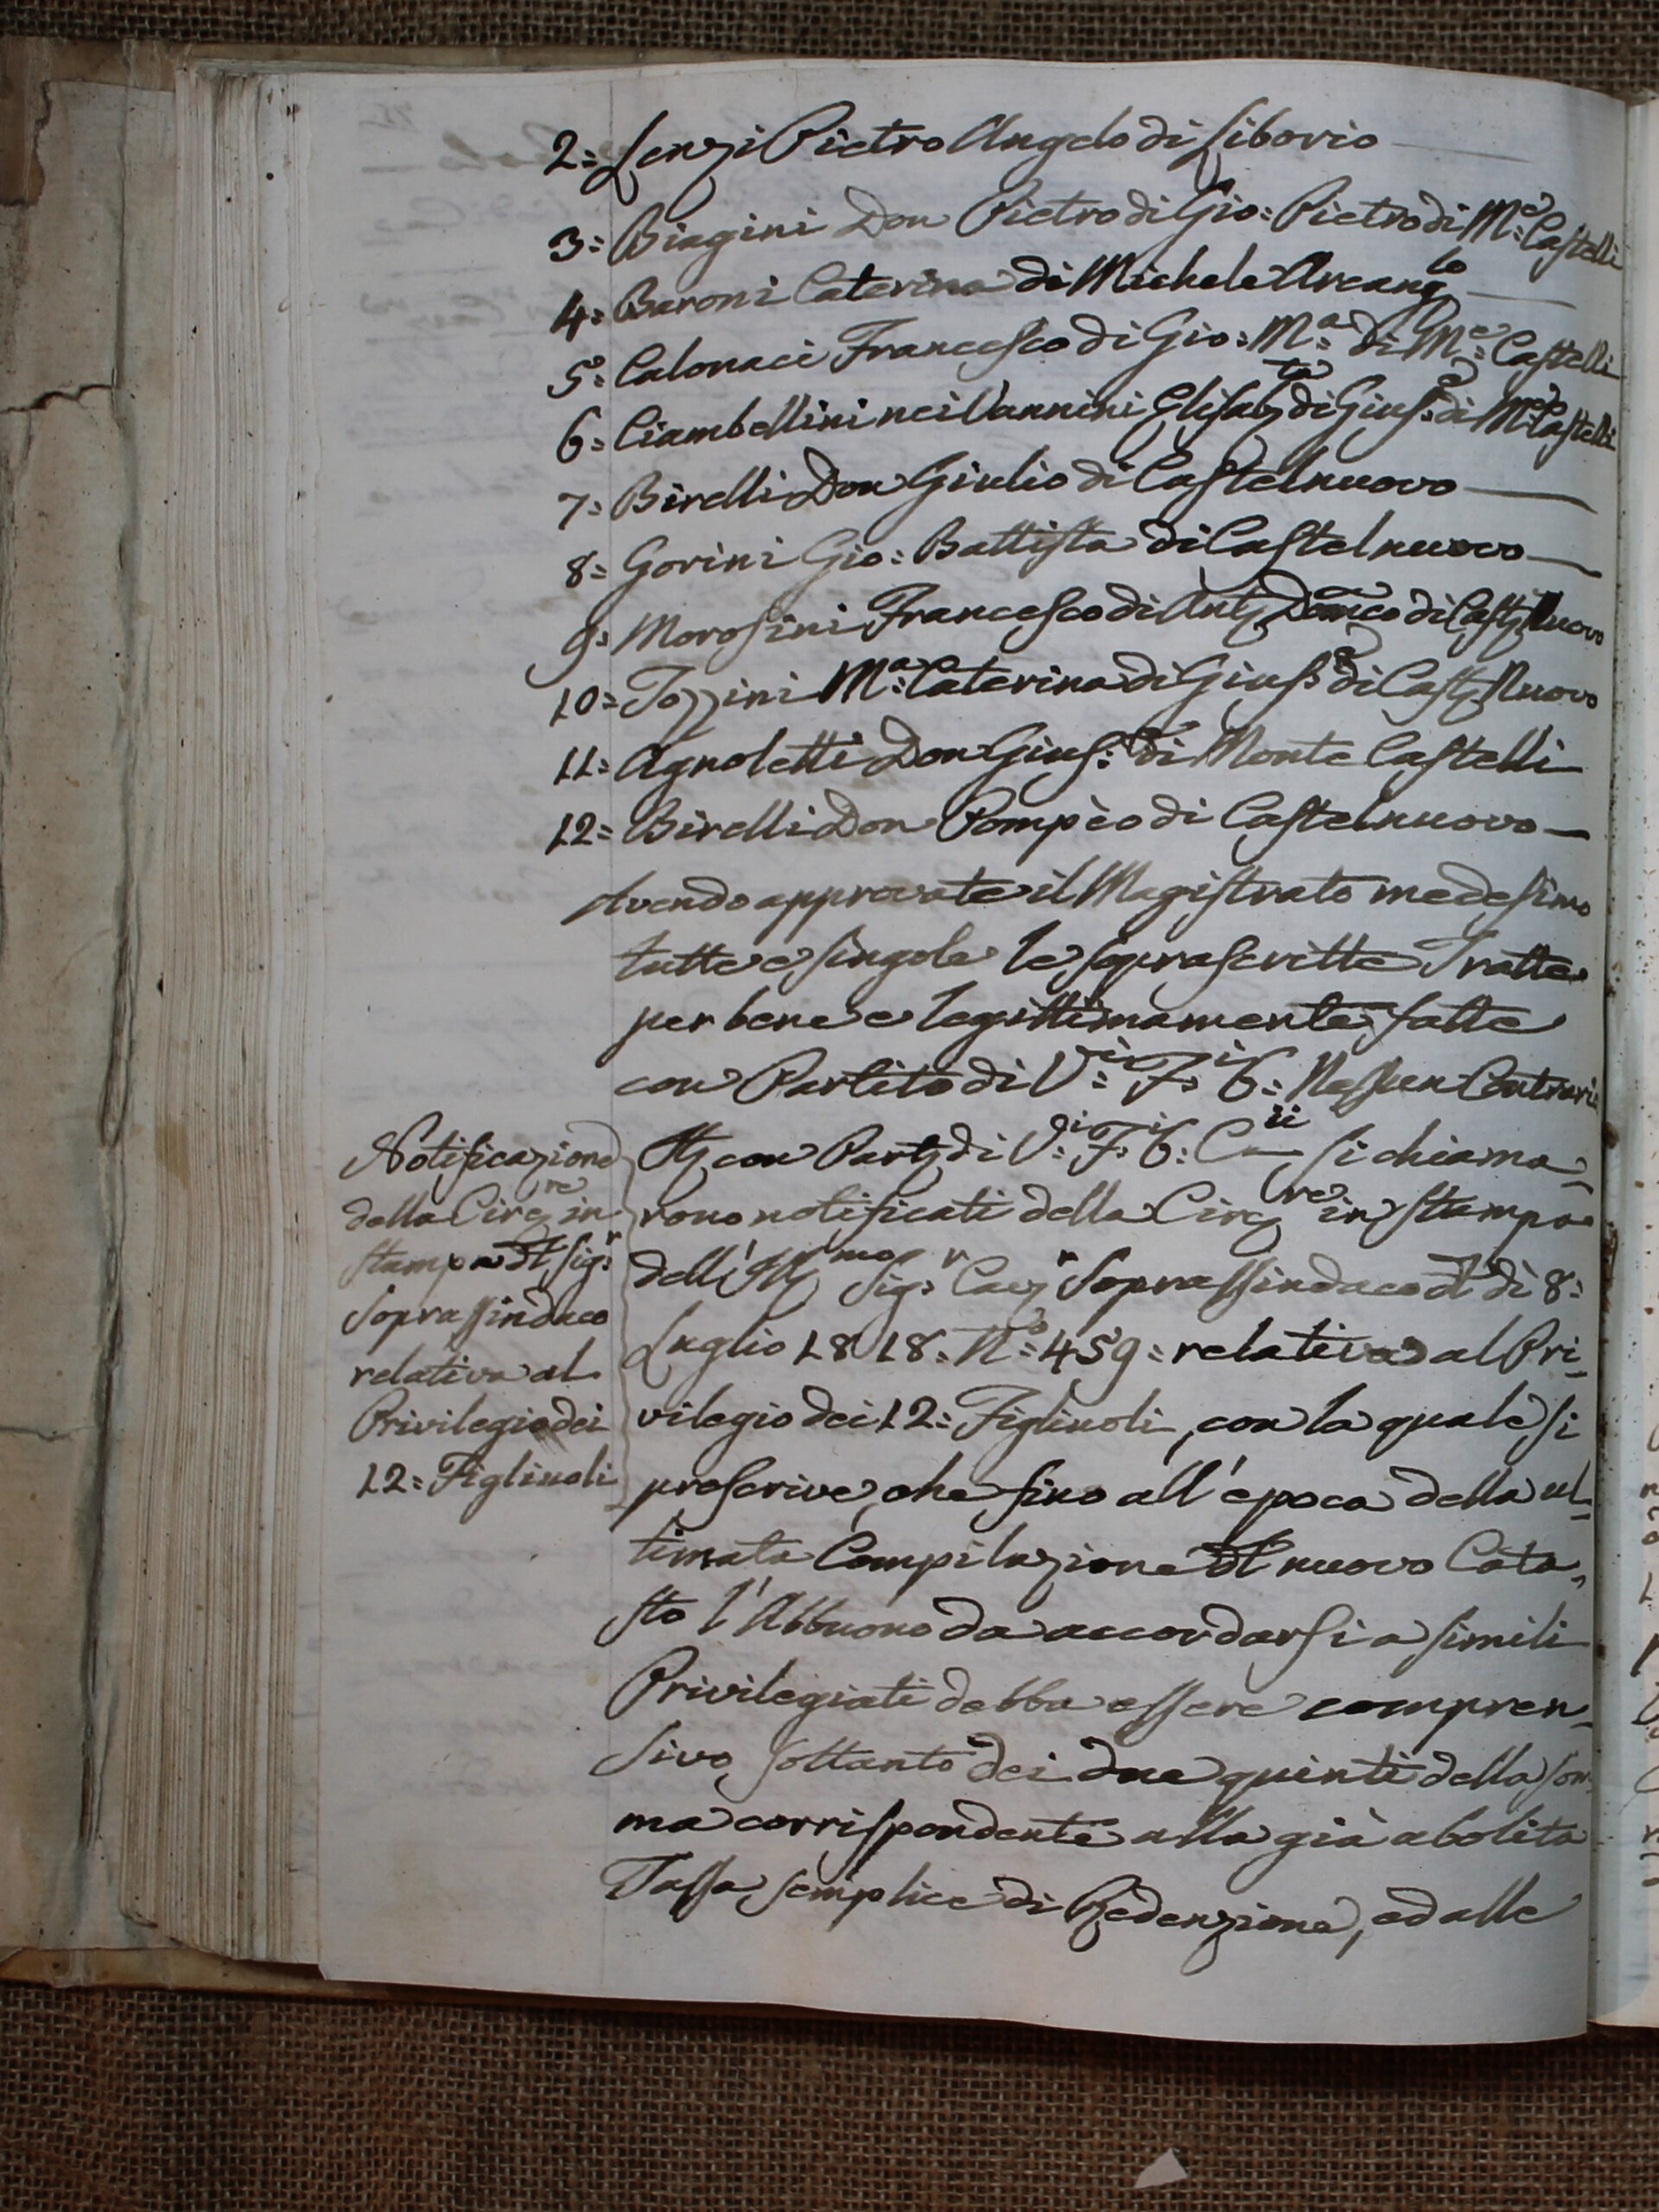 2= Lenzi Pietro Angelo di Liborio
3= Biagini Don Pietro di Gio: Pietro di M:e Castelli
4= Baroni Caterina di Michele Arcang:lo
5= Calonaci Francesco di Gio: M:a di M:e Castelli
6= Ciambellini nei Vannini Elisab:ta di Gius:e di M:e Castelli
7= Birelli Don Giulio di Castelnuovo
8= Gorini Gio: Battista di Castelnuovo
9= Morosini Francesco di Ant: Domco di Cast: Nuovo
10= Tozzini M:a Caterina di Gius:e di Cast: Nuovo
11= Agnoletti Don Gius:e di Monte Castelli
12= Birelli Don Pompèo di Castelnuovo
Avendo approvate il Magistrato medesimo
tutte e singole le soprascritte Tratte
per bene e legittimamente fatte
con Partito di V:i F:i 6: Nessun Contrario
Notificazione
della Circ:re in
stampa del Sig:r
Soprassindaco
relativa al
Privilegio dei
12= Figliuoli
It: con Part: di V:i F:i 6: C:ii si chiama=
rono notificati della Circ:re in stampa
dell' Ill:mo Sig:r Cav:r Soprassindaco del dì 8:
Luglio 1818: N:o 459= relativa al Pri=
vilegio dei 12= Figliuoli, con la quale si
prescrive, che fino all' epoca della ul=
timata Compilazione del nuovo Cata=
sto l' Abbuono da accordarsi a simili
Privilegiati debba essere compren=
sivo soltanto dei due quinti della som=
ma corrispondente alla già abolita
Tassa semplice di Redenzione, ed alle